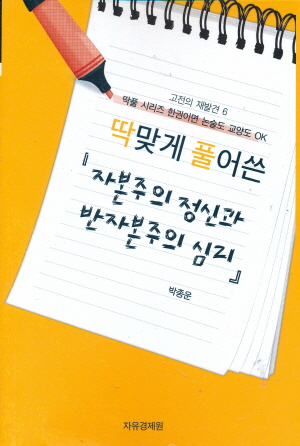 고전의 재발견 6
딱풀 시리즈 한권이면 논술도 교양도 OK
딱맞게 풀어쓴
『자본주의 정신과
반자본주의 심리』
박종운
자유경제원